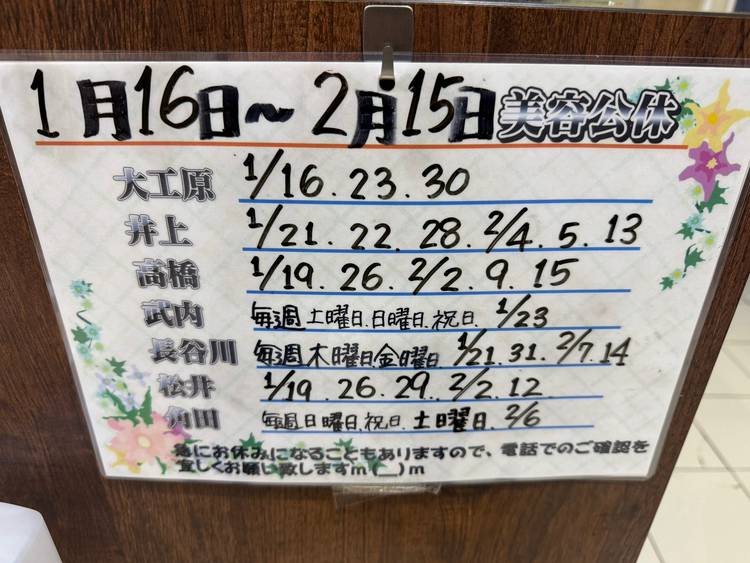 1月16日～2月15日 美容公休
大工原 1/16.23.30
井上 1/21.22.28.2/4.5.13
高橋 1/19.26.2/2.9.15
武内 毎週土曜日.日曜日.祝日.1/23
長谷川 毎週木曜日金曜日 1/21.31.2/7.14
松井 1/19.26.29.2/2.12.
角田 毎週日曜日.祝日.土曜日.2/6
急にお休みになることもありますので、電話でのご確認を
宜しくお願い致しますm(__)m